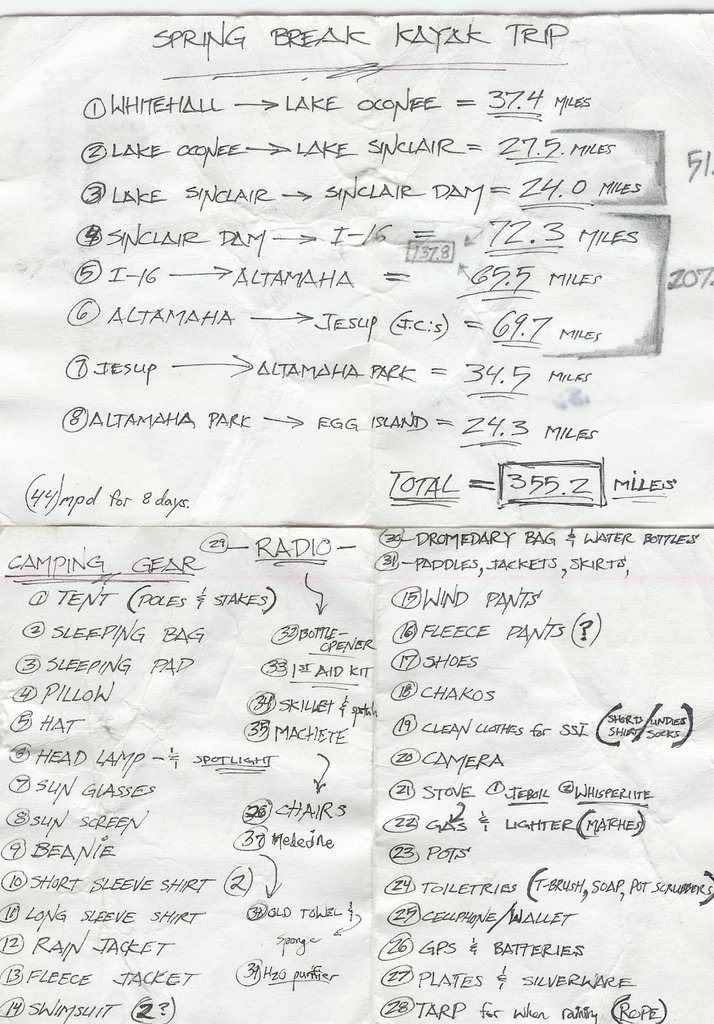 SPRING BREAK KAYAK TRIP
① WHITEHALL → LAKE OCONEE = 37.4 MILES
② LAKE OCONEE → LAKE SINCLAIR = 27.5 MILES
③ LAKE SINCLAIR → SINCLAIR DAM = 24.0 MILES
51.
④ SINCLAIR DAM → I-16 = 72.3 MILES
137.8
⑤ I-16 → ALTAMAHA = 65.5 MILES
207.
⑥ ALTAMAHA → JESUP (J.C.'s) = 69.7 MILES
⑦ JESUP → ALTAMAHA PARK = 34.5 MILES
⑧ ALTAMAHA PARK → EGG ISLAND = 24.3 MILES
TOTAL = 355.2 MILES
(44) mpd for 8 days.
CAMPING GEAR
① TENT (POLES & STAKES)
② SLEEPING BAG
③ SLEEPING PAD
④ PILLOW
⑤ HAT
⑥ HEAD LAMP - & SPOTLIGHT
⑦ SUN GLASSES
⑧ SUN SCREEN
⑨ BEANIE
⑩ SHORT SLEEVE SHIRT (2)
⑪ LONG SLEEVE SHIRT
⑫ RAIN JACKET
⑬ FLEECE JACKET
⑭ SWIMSUIT (2?)
㉙ - RADIO -
㉜ BOTTLE-
OPENER
㉝ 1ST AID KIT
㉞ SKILLET & spatula
㉟ MACHETE
㊱ CHAIRS
㊲ Medecine
㊳ OLD TOWEL &
sponge
㊴ H2O purifier
㉚ - DROMEDARY BAG & WATER BOTTLES
㉛ - PADDLES, JACKETS, SKIRTS,
⑮ WIND PANTS
⑯ FLEECE PANTS (?)
⑰ SHOES
⑱ CHAKOS
⑲ CLEAN CLOTHES for SSI (SHORTS/UNDIES
SHIRT/SOCKS)
⑳ CAMERA
㉑ STOVE ① JEBOIL ② WHISPERLITE
㉒ GAS & LIGHTER (MATHES)
㉓ POTS
㉔ TOILETRIES (T-BRUSH, SOAP, POT SCRUBBERS)
㉕ CELLPHONE/WALLET
㉖ GPS & BATTERIES
㉗ PLATES & SILVERWARE
㉘ TARP for when rainy (ROPE)